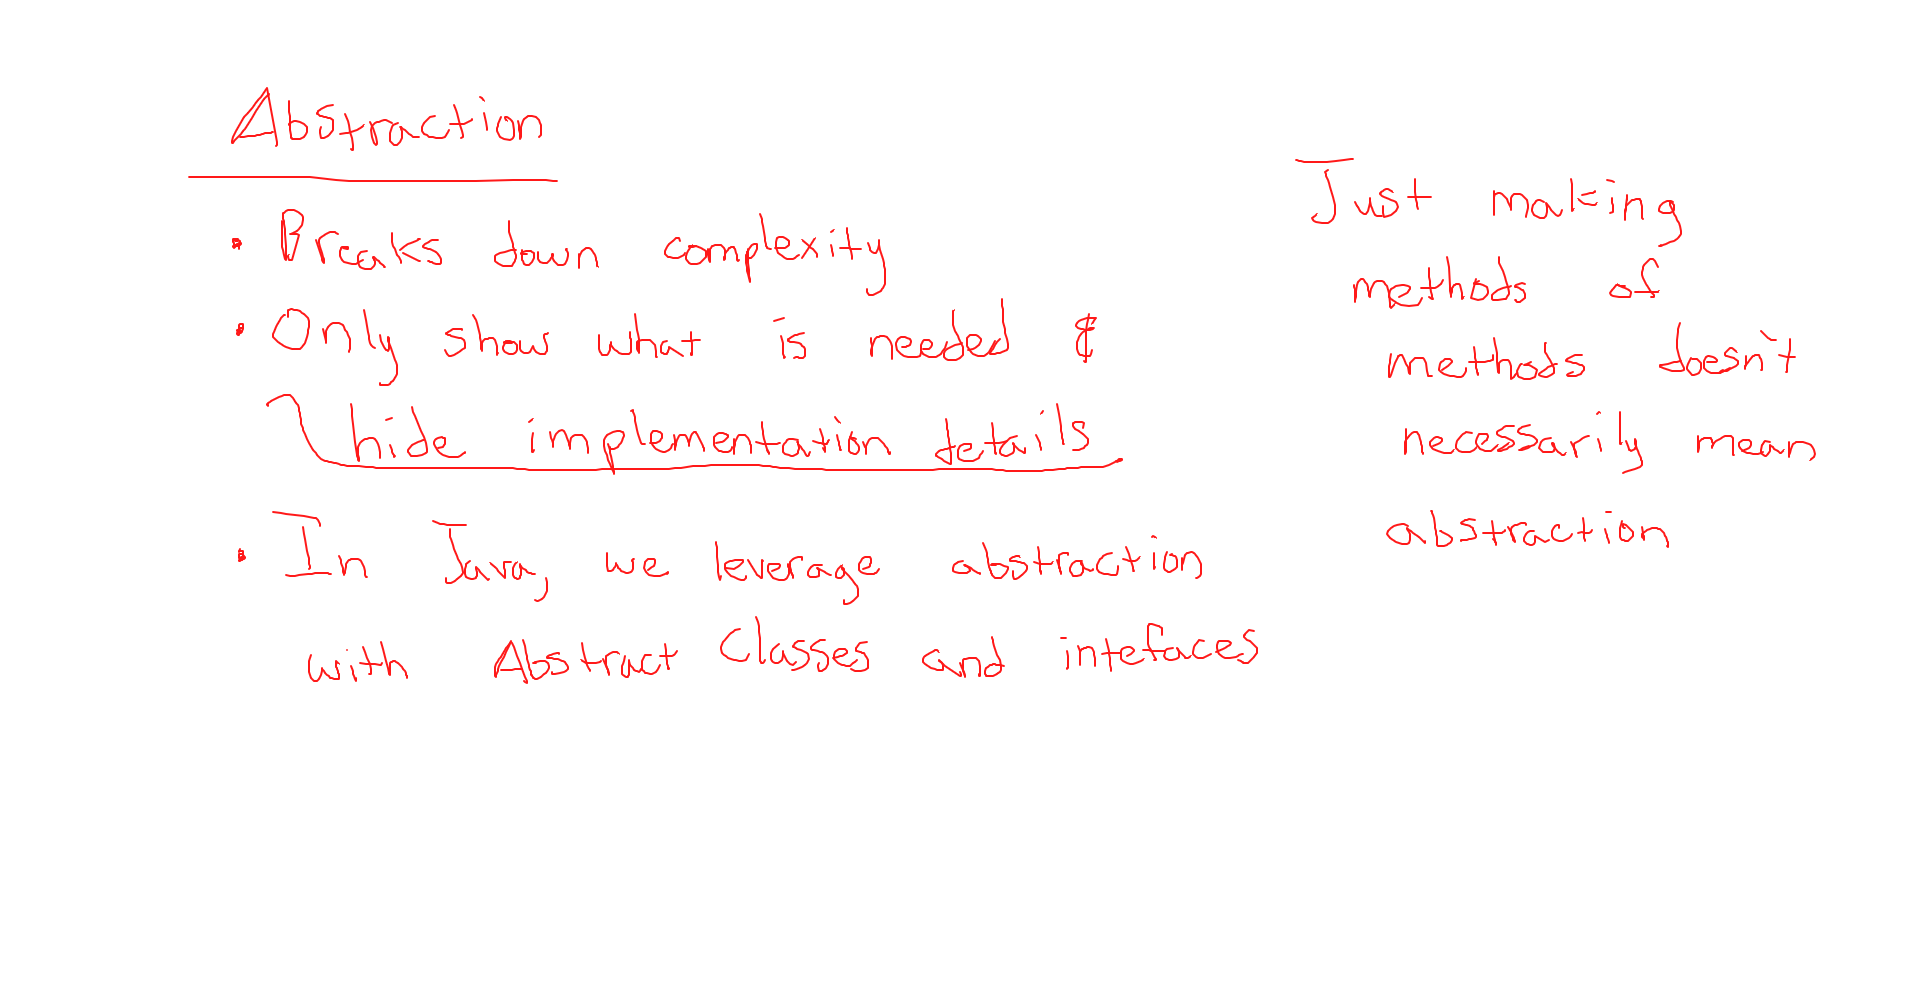 Abstraction
• Breaks down complexity
• Only show what is needed &
hide implementation details
• In Java, we leverage abstraction
with Abstract Classes and intefaces
Just making
methods of
methods doesn't
necessarily mean
abstraction